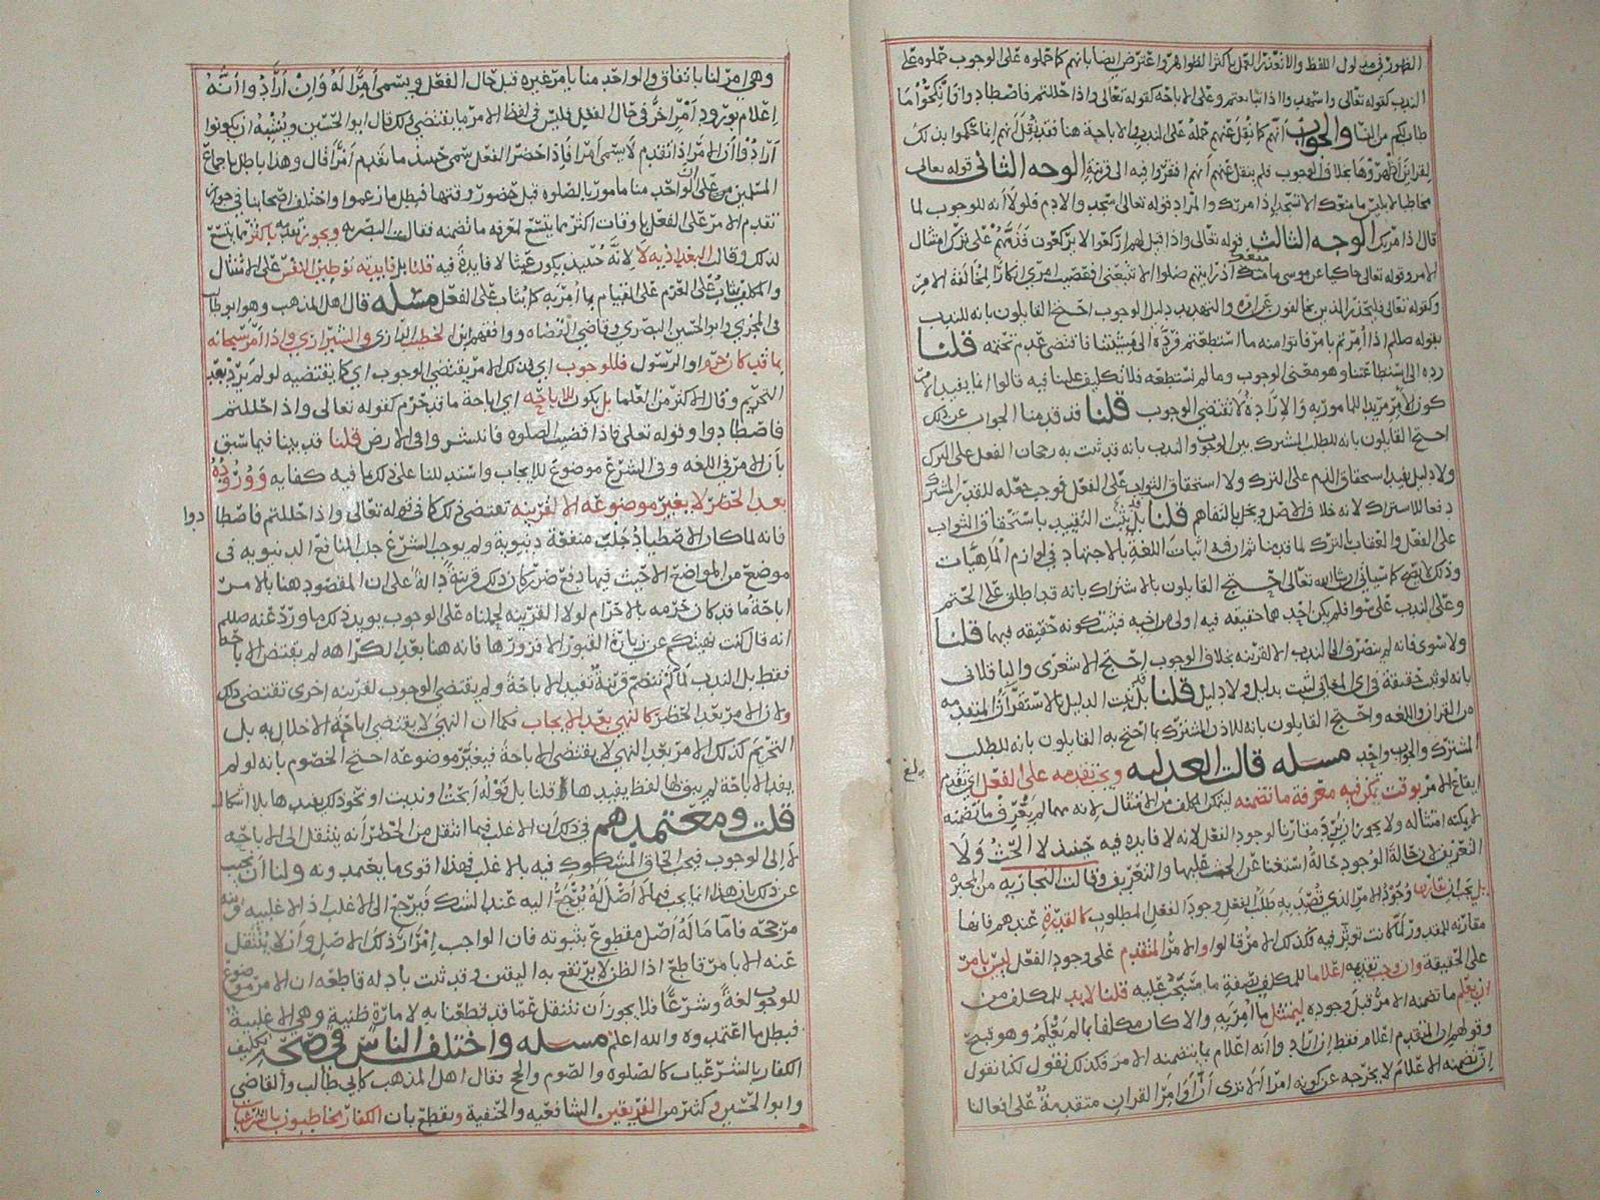 الظهور في مدلول اللفظ والا تعذر العمل باكثر الظواهر واعترض ايضا بانهم كما حملوه على الوجوب حملوه على
الندب كقوله تعالى واشهدوا اذا تبايعتم وعلى الاباحة كقوله تعالى واذا حللتم فاصطادوا فانكحوا ما
طاب لكم من النسا والجواب انهم كما نقل عنهم حمله على الندب والاباحة هنا فقد نقل انهم انما حكموا بذلك
لقراين اظهروها بخلاف الوجوب فلم ينقل عنهم انهم افتقروا فيه الى قرينة الوجه الثاني قوله تعالى
مخاطبا لابليس ما منعك الا تسجد اذ امرتك والمراد قوله تعالى اسجدوا لادم فلولا انه للوجوب لما
قال ذا مرتك الوجه الثالث قوله تعالى واذا قيل لهم اركعوا لا يركعون فذمهم على ترك امتثال
الامر وقوله تعالى حاكيا عن موسى ما منعك اذ رايتهم ضلوا الا تتبعني افعصيت امري انكارا لمخالفة الامر
وكقوله تعالى فليحذر الذين يخالفون عن امره والتهديد دليل الوجوب احتج القايلون بانه للندب
بقوله صللم اذا امرتم بامر فاتوا منه ما استطعتم فرده الى مشيئتنا فاقتضى عدم تحتمه قلنا
رده الى استطاعتنا وهو معنى الوجوب وما لم نستطعه فلا تكليف علينا فيه قالوا انما يفيد الامر
كون الامر مريدا للمامور به والارادة لا تقتضي الوجوب قلنا قد قدمنا الجواب عن ذلك
احتج القايلون بانه للطلب المشترك بين الوجوب والندب بانه قد ثبت به رجحان الفعل على الترك
ولا دليل يفيد استحقاق الذم على الترك ولا استحقاق الثواب على الفعل فوجب جعله للقدر المشترك
دفعا للاشتراك لانه خلاف الاصل ويخل بالتفاهم قلنا بل ثبت التقييد باستحقاق الثواب
على الفعل والعقاب بالترك لما قدمنا ثم ان فيه اثبات اللغة بالاجتهاد في لوازم الماهيات
وذلك لا يصح كما سياتي ان شا الله تعالى احتج القايلون بالاشتراك بانه قد اطلق على الحتم
وعلى الندب على سوا فلم يكن احدهما حقيقة فيه اولى من صاحبه فثبت كونه حقيقة فيهما قلنا
ولا سوى فانه لم يتصرف الى الندب الا لقرينة بخلاف الوجوب احتج الاشعري والباقلاني
بانه لو ثبت حقيقة في اي المعاني لثبت بدليل ولا دليل قلنا بل ثبت الدليل بالاستقرآت المتقدمه
من القران واللغه واحتج القايلون بانه للاذن المشترك بما احتج به القايلون بانه للطلب
المشترك والجواب واحد مسله قالت العدليه ويجب تقدمه على الفعل اي تقدم
ايقاع الامر بوقت يمكن فيه معرفة ما تضمنه ليتمكن المكلف من الامتثال لانه مهما لم يعرف ما تضمنه
لم يمكنه امتثاله ولا يجوز ان يرد مقارنا لوجود الفعل لانه لا فايده فيه حينئذ لا الحث ولا
التعريف لان حالة الوجود حالة استغنا عن الحث عليها والتعريف وقالت النجاريه من المجبره
بل يجب ان يقارن وجود الامر الذي قصد به طلب الفعل وجود الفعل المطلوب كالقدرة عندهم فانها
مقارنه للمقدور لما كانت توثر فيه فكذلك الامر قالوا والامر المتقدم على وجود الفعل ليس بامر
على الحقيقة وان وجب تقديمه اعلاما للمكلف بصفة ما سيجب عليه قلنا لا بد للمكلف من
ان يعلم ما تضمنه الامر قبل وجوده ليمتثل ما امر به والا كان مكلفا بما لم يعلم وهو قبيح
وقولهم ان المتقدم اعلام فقط ان ارادوا انه اعلام بما تضمنه الامر فكذلك نقول لكنا نقول
ان تضمنه الاعلام لا يخرجه عن كونه امرا الا ترى ان اوامر القران متقدمة على افعالنا
بلغ
وهي امر لنا باتفاق والواحد منا يامر غيره قبل حال الفعل ويسمى امرا له وان ارادوا انه
اعلام بورود امر اخر في حال الفعل فليس في لفظ الامر ما يقتضي ذلك قال ابو الحسين ويشبه ان يكونوا
ارادوا ان الامر اذا تقدم لا يسمى امرا فاذا حضر الفعل سمي حينئذ ما تقدم امرا قال وهذا باطل باجماع
المسلمين من على ان الواحد منا مامور بالصلوه قبل حضور وقتها فبطل ما زعموا واختلف اصحابنا في جواز
تقدم الامر على الفعل باوقات اكثر مما يتسع لمعرفه ما تضمنه فقالت البصريه ويجوز تقدمه باكثر مما يتسع
لذلك وقال البغداذيه لا لانه حينئذ يكون عبثا لا فايدة فيه قلنا بل فايدته توطين النفس على الامتثال
والمكلف يثاب على العزم على القيام بما امر به كما يثاب على الفعل مسله قال اهل المذهب وهو ابو طالب
في المجزي وابو الحسين البصري وقاضي القضاه ووافقهم ابن الخطيب الرازي والشيرازي واذا امر سبحانه
بما قد كان حرمه او الرسول فللوجوب اي فذلك الامر يقتضي الوجوب اي كما يقتضيه لو لم يرد بعد
التحريم وقال الاكثر من العلما بل يكون للاباحه اي اباحة ما قد حرم كقوله تعالى واذا حللتم
فاصطادوا وقوله تعلى فاذا قضيت الصلوه فانتشروا في الارض قلنا قد بينا فيما سبق
بان الامر في اللغه وفي الشرع موضوع للايجاب واستدللنا على ذلك بما فيه كفايه ووروده
بعد الحظر لا يغير موضوعه الا لقرينه تقتضي ذلك كما في قوله تعالى واذا حللتم فاصطا
دوا
فانه لما كان الاصطياد جلب منفعة دنيوية ولم يوجب الشرع جلب المنافع الدنيويه في
موضع من المواضع الا حيث فيها دفع ضرر كان ذلك قرينة دالة على ان المقصود هنا بالامر
اباحة ما قد كان حرمه بالاحرام لولا القرينه لحملناه على الوجوب يويد ذلك ما ورد عنه صللم
انه قال كنت نهيتكم عن زيارة القبور الا فزوروها فانه هنا بعد الكراهه لم يقتض الاباحه
فقط بل الندب لما لم تنضم قرينة تفيد الاباحة ولم يقتضي الوجوب لقرينه اخرى تقتضي ذلك
ولان الامر بعد الحظر كالنهي بعد الايجاب فكما ان النهي لا يقتضي اباحة الاخلال به بل
التحريم كذلك الامر بعد النهي لا يقتضي الاباحة فيغير موضوعه احتج الخصوم بانه لو لم
يفد الاباحة لم يبق لها لفظ يفيدها قلنا بل قوله ابحت وندبت او نحو ذلك يفيدها بلا اشكال
قلت ومعتمدهم في ذلك ان الاغلب فيما انتقل من الحظر انه ينتقل الى الاباحه
لا الى الوجوب فيجب الحاق المشكوك فيه بالاغلب فهذا اقوى ما يعتمدونه ولنا ان نجيب
عن ذلك بان هذا انما يجب فيما لا اصل له يرجع اليه عند الشك فيرجع الى الاغلب اذ الاغلبيه قرينه
مرجحه فاما ما له اصل مقطوع بثبوته فان الواجب اقرار ذلك الاصل وان لا ينتقل
عنه الا بامر قاطع اذ الظن لا يرتفع به اليقين وقد ثبت بادله قاطعه ان الامر موضوع
للوجوب لغة وشرعا فلا يجوز ان ننتقل عما قد قطعنا به لامارة ظنية وهي الاغلبية
فبطل ما اعتمدوه والله اعلم مسله واختلف الناس في صحة تكليف
الكفار بالشرعيات كالصلوه والصوم والحج فقال اهل المذهب كابي طالب والقاضي
وابو الحسين وكثير من الفريقين الشافعيه والحنفية ونقطع بان الكفار مخاطبون بالشرعيات